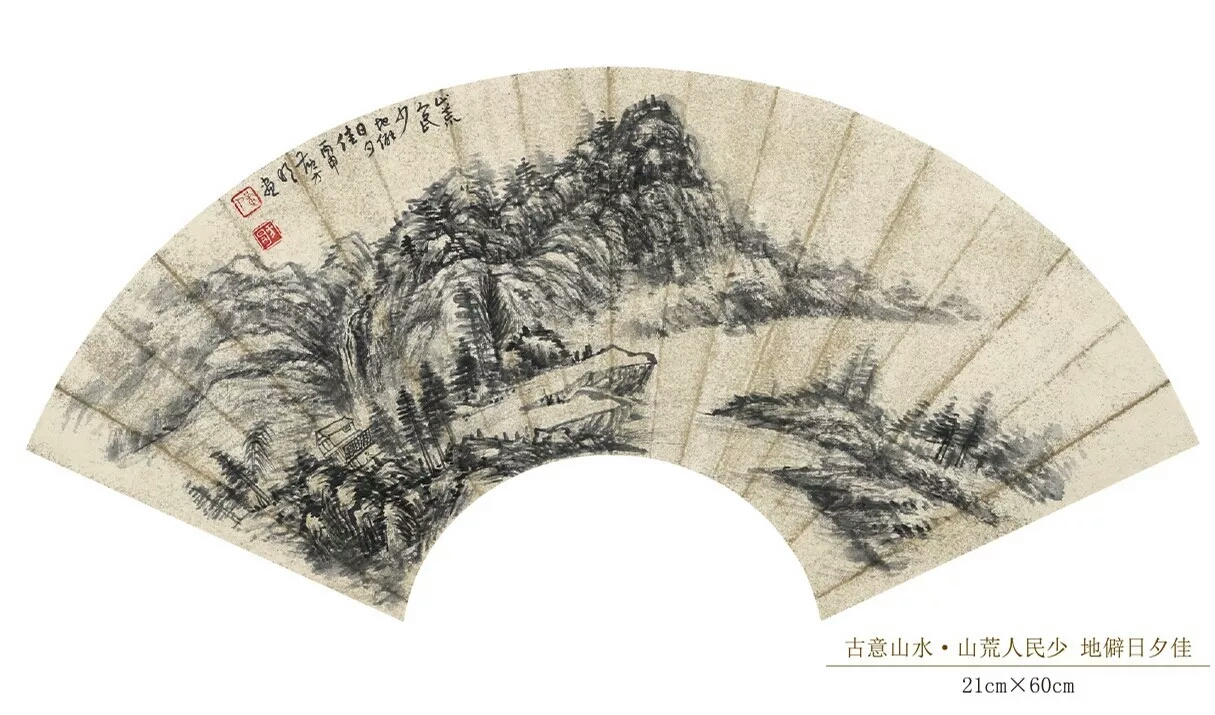 山荒
人民
少
地僻
日夕
佳
丙申
画
古意山水·山荒人民少 地僻日夕佳
21cm×60cm